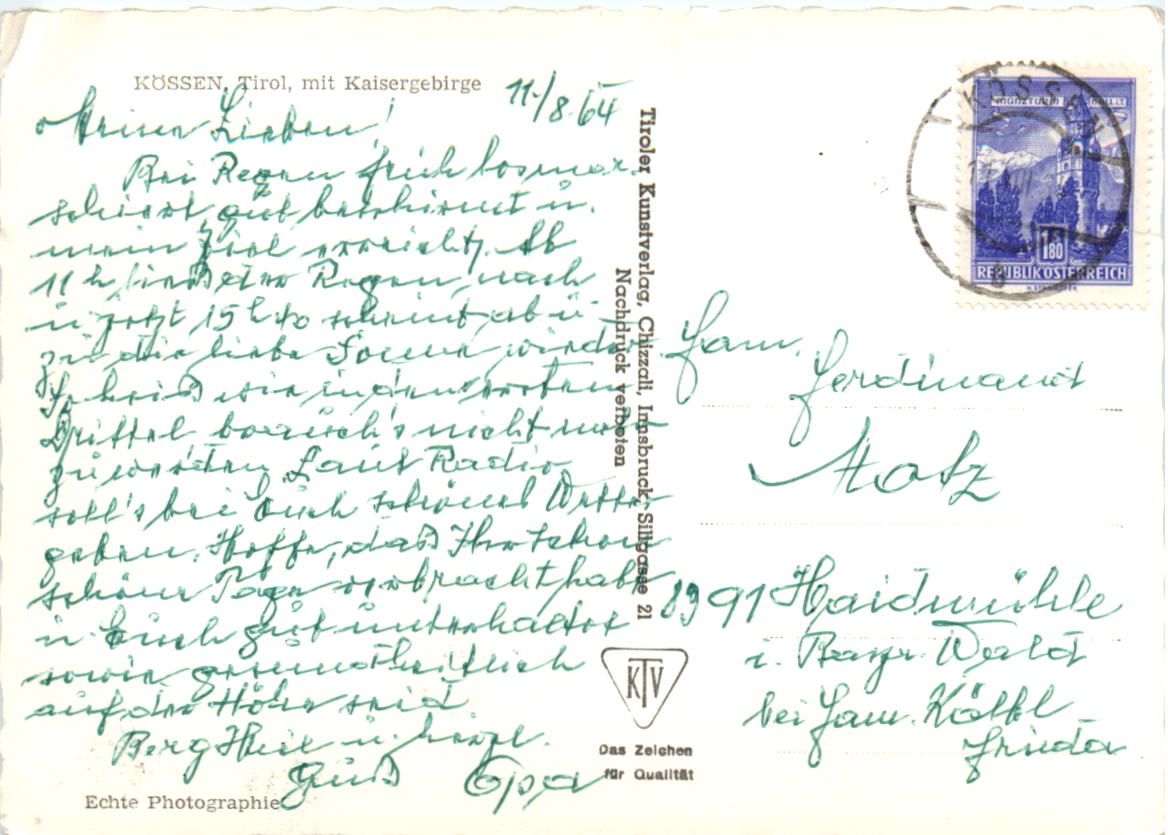 KÖSSEN, Tirol, mit Kaisergebirge
11./8.64
Meine Lieben!
Bei Regen früh losmar-
schiert, gut beschirmt u.
mein Ziel erreicht. Ab
11 h ließ der Regen nach
u. jetzt 15 h 40 scheint ab u.
zu die liebe Sonne wieder.
So heiß wie in den ersten
Drittel brauch's nicht mehr
zu werden. Laut Radio
soll's bei Euch schönes Wetter
geben. Hoffe, daß Ihr schon
schöne Tage verbracht habt
u. Euch gut unterhaltet
sowie gesundheitlich
auf der Höhe seid.
Berg Heil u. herzl.
Gruß Opa
Echte Photographie
Tiroler Kunstverlag, Chizzali, Innsbruck, Sillgasse 21
Nachdruck verboten
KTV
Das Zeichen
für Qualität
KÖSSEN
MÜNZTURM HALL I.T.
180
REPUBLIK ÖSTERREICH
Fam.
Ferdinand
Motz
8391 Haidmühle
i. Bayr. Wald
bei Fam.
Frieda